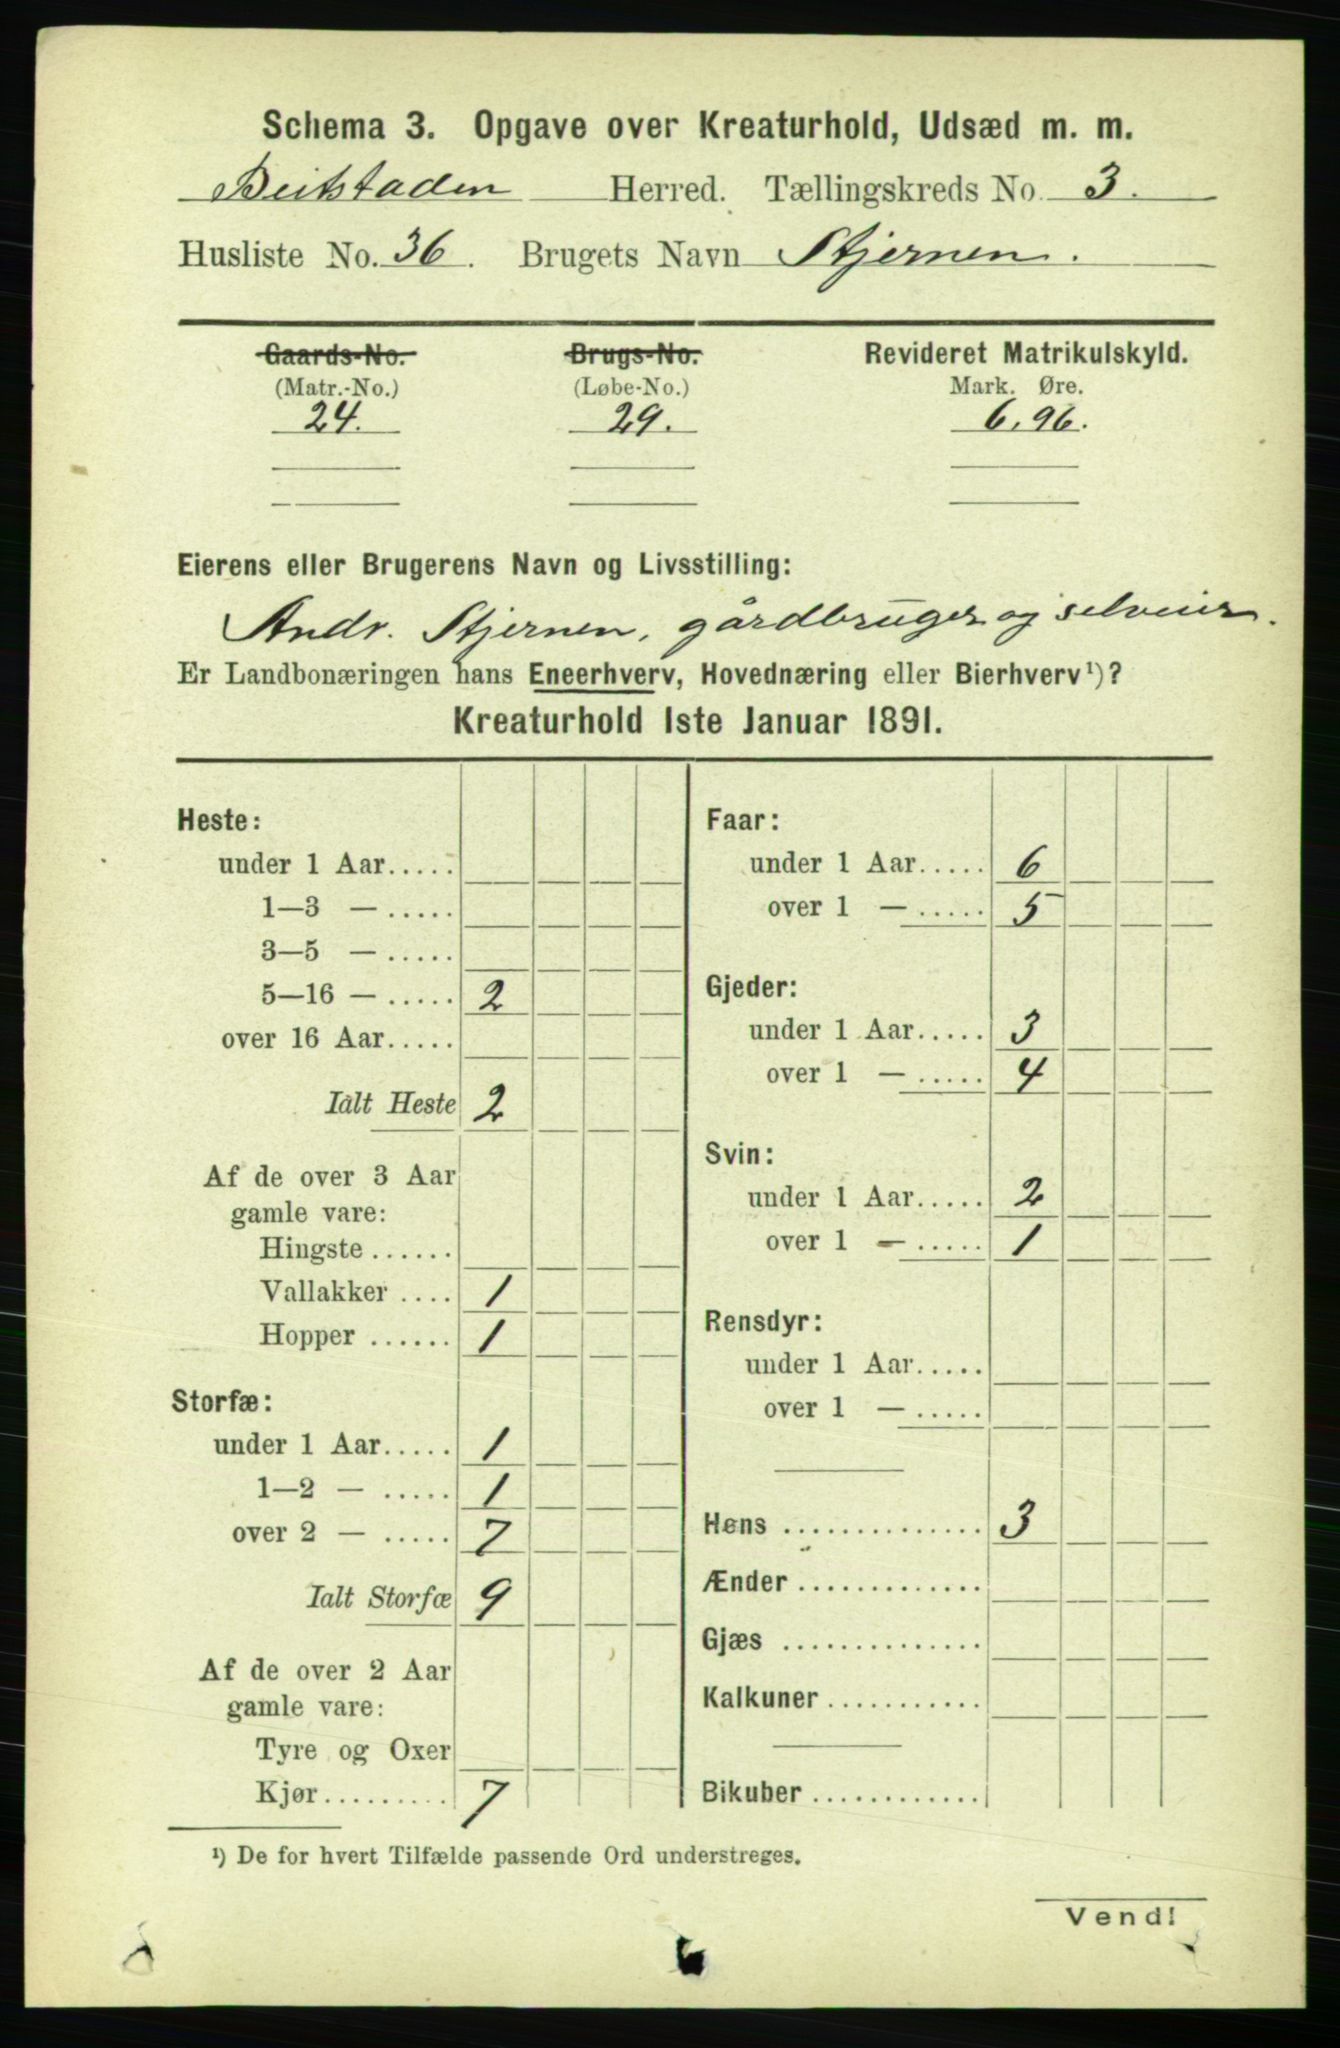 Schema 3. Opgave over Kreaturhold, Udsæd m. m.
Beitstaden Herred. Tællingskreds No. 3.
Husliste No. 36. Brugets Navn Stjernen.
Gaards-No. Brugs-No. Revideret Matrikulskyld.
(Matr.-No.) (Løbe-No.) Mark. Øre.
24. 29. 6,96.
Eierens eller Brugerens Navn og Livsstilling:
Andr. Stjernen, gårdbruger og selveier.
Er Landbonæringen hans Eneerhverv, Hovednæring eller Bierhverv¹)?
Kreaturhold 1ste Januar 1891.
Heste:
under 1 Aar.....
1—3 — .....
3—5 — .....
5—16 — ..... 2
over 16 Aar.....
Ialt Heste 2
Af de over 3 Aar
gamle vare:
Hingste ......
Vallakker .... 1
Hopper ...... 1
Storfæ:
under 1 Aar..... 1
1—2 — ..... 1
over 2 — ..... 7
Ialt Storfæ 9
Af de over 2 Aar
gamle vare:
Tyre og Oxer
Kjør......... 7
Faar:
under 1 Aar..... 6
over 1 — ..... 5
Gjeder:
under 1 Aar..... 3
over 1 — ..... 4
Svin:
under 1 Aar..... 2
over 1 — ..... 1
Rensdyr:
under 1 Aar.....
over 1 — .....
Høns .............. 3
Ænder .............
Gjæs ..............
Kalkuner ...........
Bikuber ............
¹) De for hvert Tilfælde passende Ord understreges.
Vend!